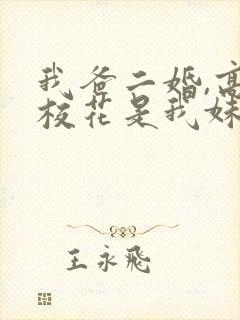 我爸二婚,高
校花是我妹
王永飛